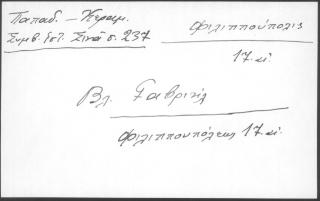 Παπαδ. – Κεραμ.
Συμβ. Ἱστ. Σινᾶ σ. 237
Φιλιππούπολις
17. αἰ.
Βλ. Γαβριήλ
Φιλιππουπόλεως 17. αἰ.